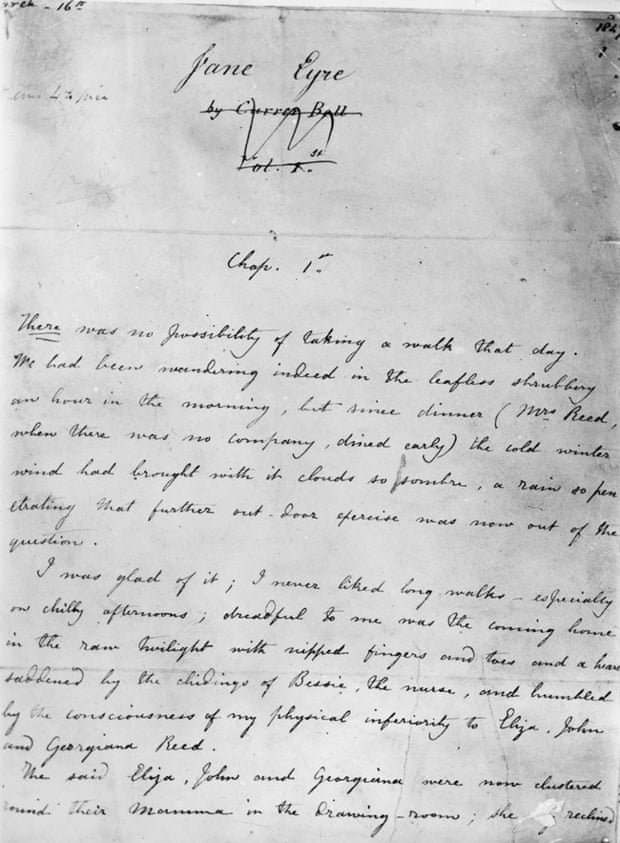 March - 16th
184
Jane Eyre
by Currer Bell
Vol. 1.st
Chap. 1st
There was no possibility of taking a walk that day.
We had been wandering indeed in the leafless shrubbery
an hour in the morning, but since dinner (Mrs Reed,
when there was no company, dined early) the cold winter
wind had brought with it clouds so sombre, a rain so pen
etrating that further out-door exercise was now out of the
question.
I was glad of it; I never liked long walks - especially
on chilly afternoons; dreadful to me was the coming home
in the raw twilight with nipped fingers and toes and a heart
saddened by the chidings of Bessie, the nurse, and humbled
by the consciousness of my physical inferiority to Eliza, John
and Georgiana Reed.
The said Eliza, John and Georgiana were now clustered
round their Mamma in the drawing-room; she reclined